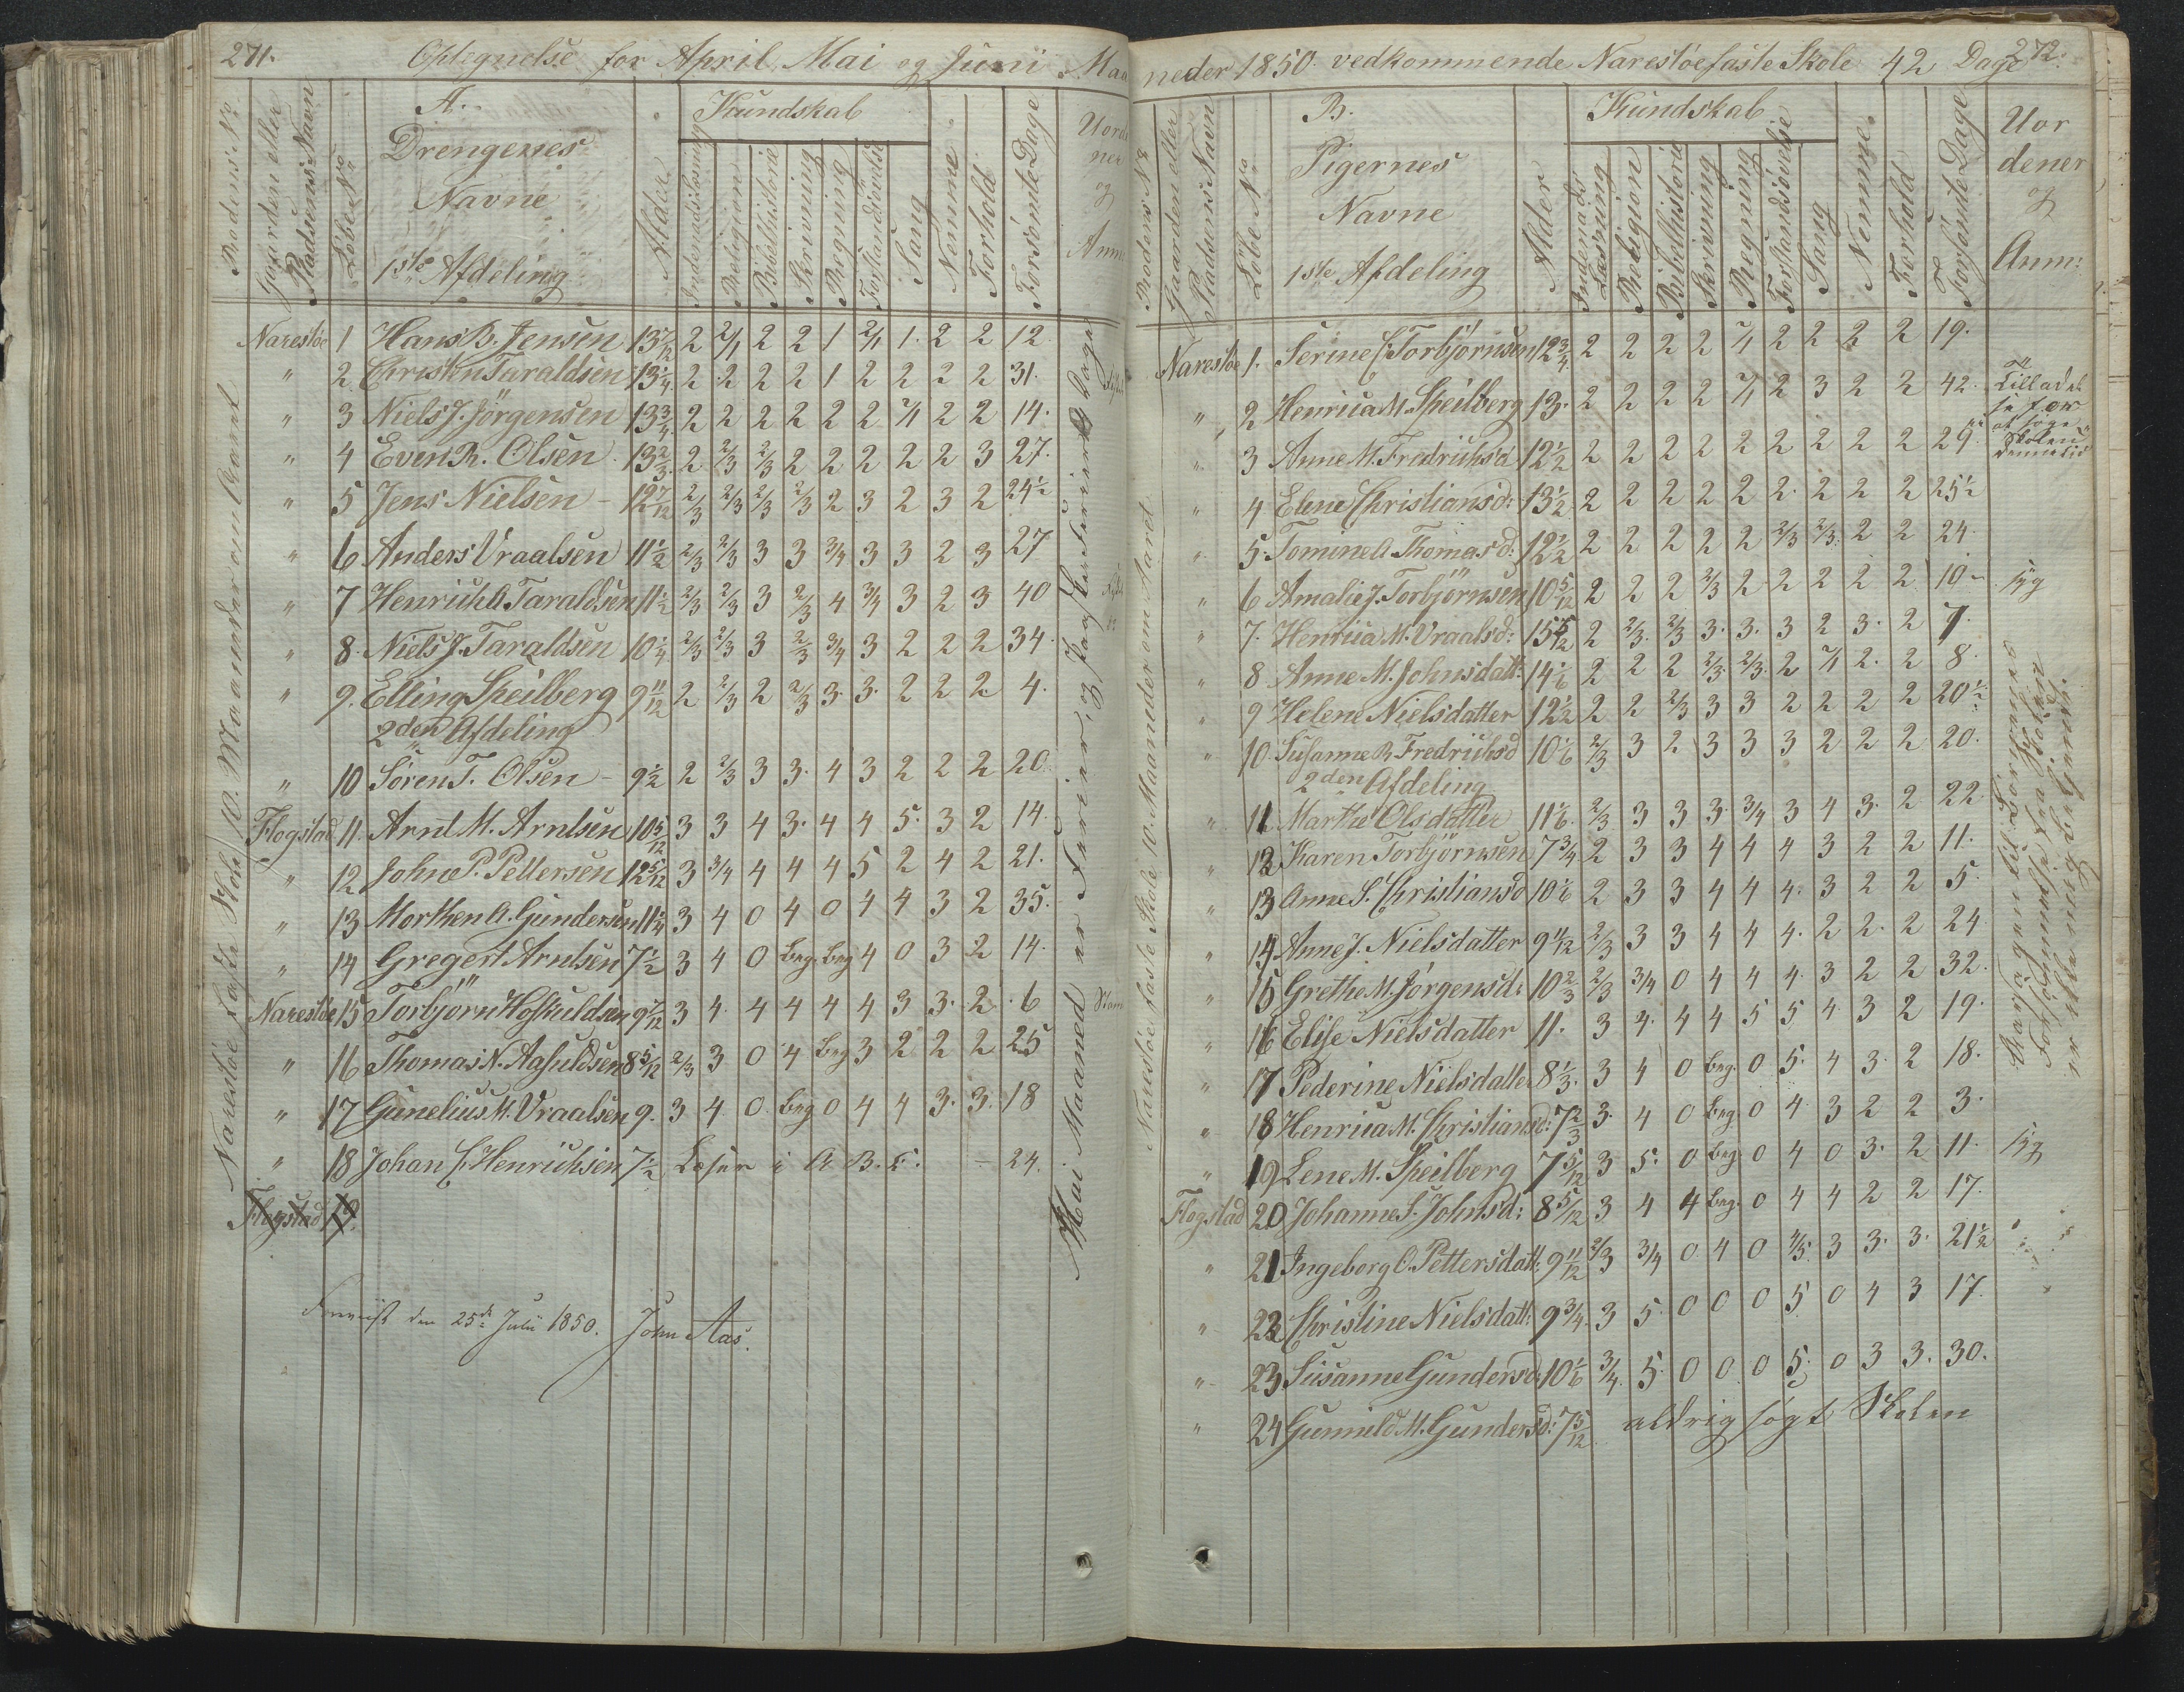 271.
Optegnelse for April, Mai og Juni Maa
Rodens No
Gaarden eller Pladsens Navn
Löbe No
A.
Drengenes
Navne
1ste Afdeling
Alder
Kundskab
Indenadslæsning
Religion
Bibelhistorie
Skrivning
Regning
Forstandsövelse
Sang
Nemme
Forhold
Forsömte Dage
Uord
ner
og
Anm
Narestöe 1 Hans B. Jensen 13 7/12 2 2/1 2 2 1 2/1 1. 2 2 12
" 2 Christen Taraldsen 13 1/4 2 2 2 2 1 2 2 2 2 31.
" 3 Niels J. Jörgensen 13 3/4 2 2 2 2 2 2 2/1 2 2 14.
" 4 Even R. Olsen 13 2/3 2 2/3 2/3 2 2 2 2 2 3 27.
" 5 Jens Nielsen - 12 7/12 2/3 2/3 2/3 2/3 2 3 2 3 2 24 1/2
" 6 Anders Vraalsen 11 1/2 2/3 2/3 3 3 3/4 3 3 2 3 27
" 7 Henrich A. Taraldsen 11 1/2 2/3 2/3 3 2/3 4 3/4 3 2 3 40
" 8. Niels J. Taraldsen 10 1/4 2/3 2/3 3 2/3 3/4 3 2 2 2 34.
" 9. Elling Speilberg 9 11/12 2 2/3 2 2/3 3. 3. 2 2 2 4.
2den Afdeling
" 10 Sören T. Olsen - 9 1/2 2 2/3 3 3. 4 3 2 2 2 20.
Flogstad 11. Arnt M. Arntsen 10 5/12 3 3 4 3. 4 4 5. 3 2 14.
" 12 John P. Pettersen 12 5/12 3 3/4 4 4 4 5 2 4 2 21.
" 13 Morthen A. Gundersen 11 1/4 3 4 0 4 0 4 4 3 2 35.
" 14 Gregert Arntsen 7 1/2 3 4 0 beg. beg 4 0 3 2 14.
Narestöe 15 Torbjörn Hofkuldsen 9 7/12 3 4 4 4 4 4 3 3. 2. 6
" 16 Thomas N. 8 5/12 2/3 3 0 4 beg 3 2 2 2 25
" 17 Gunelius M. Vraalsen 9. 3 4 0. beg 0 4 4 3. 3. 18
" 18 Johan C. Henrichsen 7 1/2 Læser i A. B. C. - 24.
Flogstad 19.
Narestöe faste Skole 10. Maaneder om Aaret
Mai Maaned er Ferier, og
den 25de Juli 1850. John Aas.
neder 1850 vedkommende Narestöe faste Skole 42 Dage
272.
Rodens No
Gaarden eller Pladsens Navn
Löbe No
B.
Pigernes
Navne
1ste Afdeling
Alder
Kundskab
Indenads Læsning
Religion
Bibelhistorie
Skrivning
Regning
Forstandsövelse
Sang
Nemme.
Forhold
Forsömte Dage
Uor
dener
og
Anm:
Narestöe 1. Serine C. Torbjörnsen 12 3/4 2 2 2 2 2/1 2 2 2 2 19.
" 2 Henrica M. Speilberg 13. 2 2 2 2 2/1 2 3 2 2 42. Tilladelse
at söge
Skolen
" 3 Anne M. Fredrichsd 12 1/2 2 2 2 2 2 2 2 2 2 29.
" 4 Elene Christiansd: 13 1/2 2 2 2 2 2 2 2 2 2 25 1/2
" 5. Tomine A. Thomasd: 12 1/2 2 2 2 2 2 2/3 2/3. 2 2 24.
" 6 Amalie J. Torbjörnsen 10 5/12 2 2 2 2/3 2 2 2 2 2 10 - syg
" 7. Henrica M. Vraalsd: 15 5/12 2 2/3. 2/3 3. 3. 3 2 3. 2 7.
" 8 Anne M. Johnsdatt: 14 1/6 2 2 2 2/3. 2/3. 2 2/1 2. 2 8.
" 9 Helene Nielsdatter 12 1/2 2 2 2/3 3 3 2 2 2 2 20 1/2
" 10. Susanne R. Fredrichsd 10 1/6 2/3 3 2 3 3 3 2 2 2 20.
2den Afdeling
" 11 Marthe Olsdatter 11 1/6. 2/3 3 3 3. 3/4 3 4 3. 2 22
" 12 Karen Torbjörnsen 7 3/4 2 3 3 4 4 4 3 2 2 11.
" 13 Anne S. Christiansd 10 1/6 2 3 3 4 4 4. 3 2 2 5.
" 14 Anne J. Nielsdatter 9 11/12 2/3 3 3 4 4 4. 2 2. 2 24.
" 15 Grethe M. Jörgensd: 10 2/3 2/3 3/4 0 4 4 4. 3 2 2 32.
" 16 Elise Nielsdatter 11. 3 4. 4 4 5 5 4 3 2 19.
" 17 Pederine Nielsdatter 8 1/3. 3 4 0 beg. 0 5. 4 3. 2 18.
" 18 Henrica M. Christiansd: 7 2/3 3. 4 0 beg 0 4. 3 2 2 3.
" 19 Lene M. Speilberg 7 5/12 3 5. 0 beg 0 4 0 3. 2 11. syg
Flogstad 20 Johanne S. Johnsd: 8 5/12 3 4 4 beg. 0 4 4 2 2 17.
" 21 Ingeborg O. Pettersdatt: 9 11/12 2/3 3/4 0 4 0 4/5 3 3. 3. 21 1/2
" 22 Christine Nielsdatt: 9 3/4. 3 5. 0 0 0 5 0 4 3 17.
" 23 Susanne Gundersd 10 1/6 3/4. 5. 0 0 0 5. 0 3 3. 30.
" 24 Gunnild M. Gundersd: 7 5/12. aldrig sögt Skolen
Narestöe faste Skole 10. Maaneder om Aaret